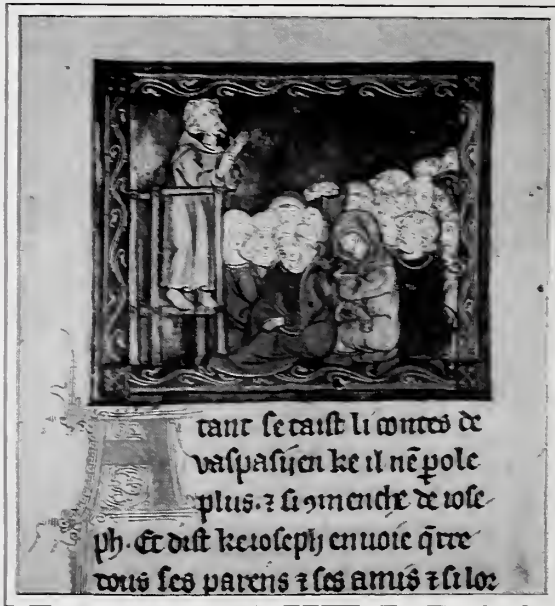 Atant se taist li contes de
vaspasijen ke il nē pole
plus. ⁊ si ꝯmenche de iose
ph. Et dist ke ioseph enuoie q̄rre
tous ses parens ⁊ ses amis ⁊ si lor